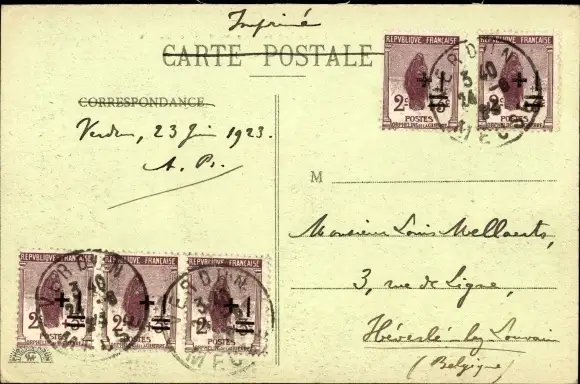 Imprimé
CARTE POSTALE
CORRESPONDANCE
Verdun, 23 Juin 1923.
A. Br.
REPUBLIQUE FRANÇAISE
+1
2c
POSTES
ORPHELINS DE LA GUERRE
REPUBLIQUE FRANÇAISE
+1
2c
POSTES
ORPHELINS DE LA GUERRE
VERDUN
3 40
MEUSE
M
Monsieur Louis Mellaerts,
3, rue de Ligne,
Héverlé-lez-Louvain
(Belgique)
REPUBLIQUE FRANÇAISE
+1
2c
POSTES
REPUBLIQUE FRANÇAISE
+1
2c
POSTES
REPUBLIQUE FRANÇAISE
+1
2c
POSTES
VERDUN
3 40
VERDUN